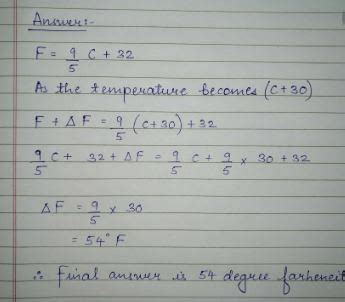 Answer:-
F = 9/5 C + 32
As the temperature becomes (C+30)
F + ΔF = 9/5 (C+30) + 32
9/5 C + 32 + ΔF = 9/5 C + 9/5 × 30 + 32
ΔF = 9/5 × 30
= 54° F
∴ Final answer is 54 degree farheneit